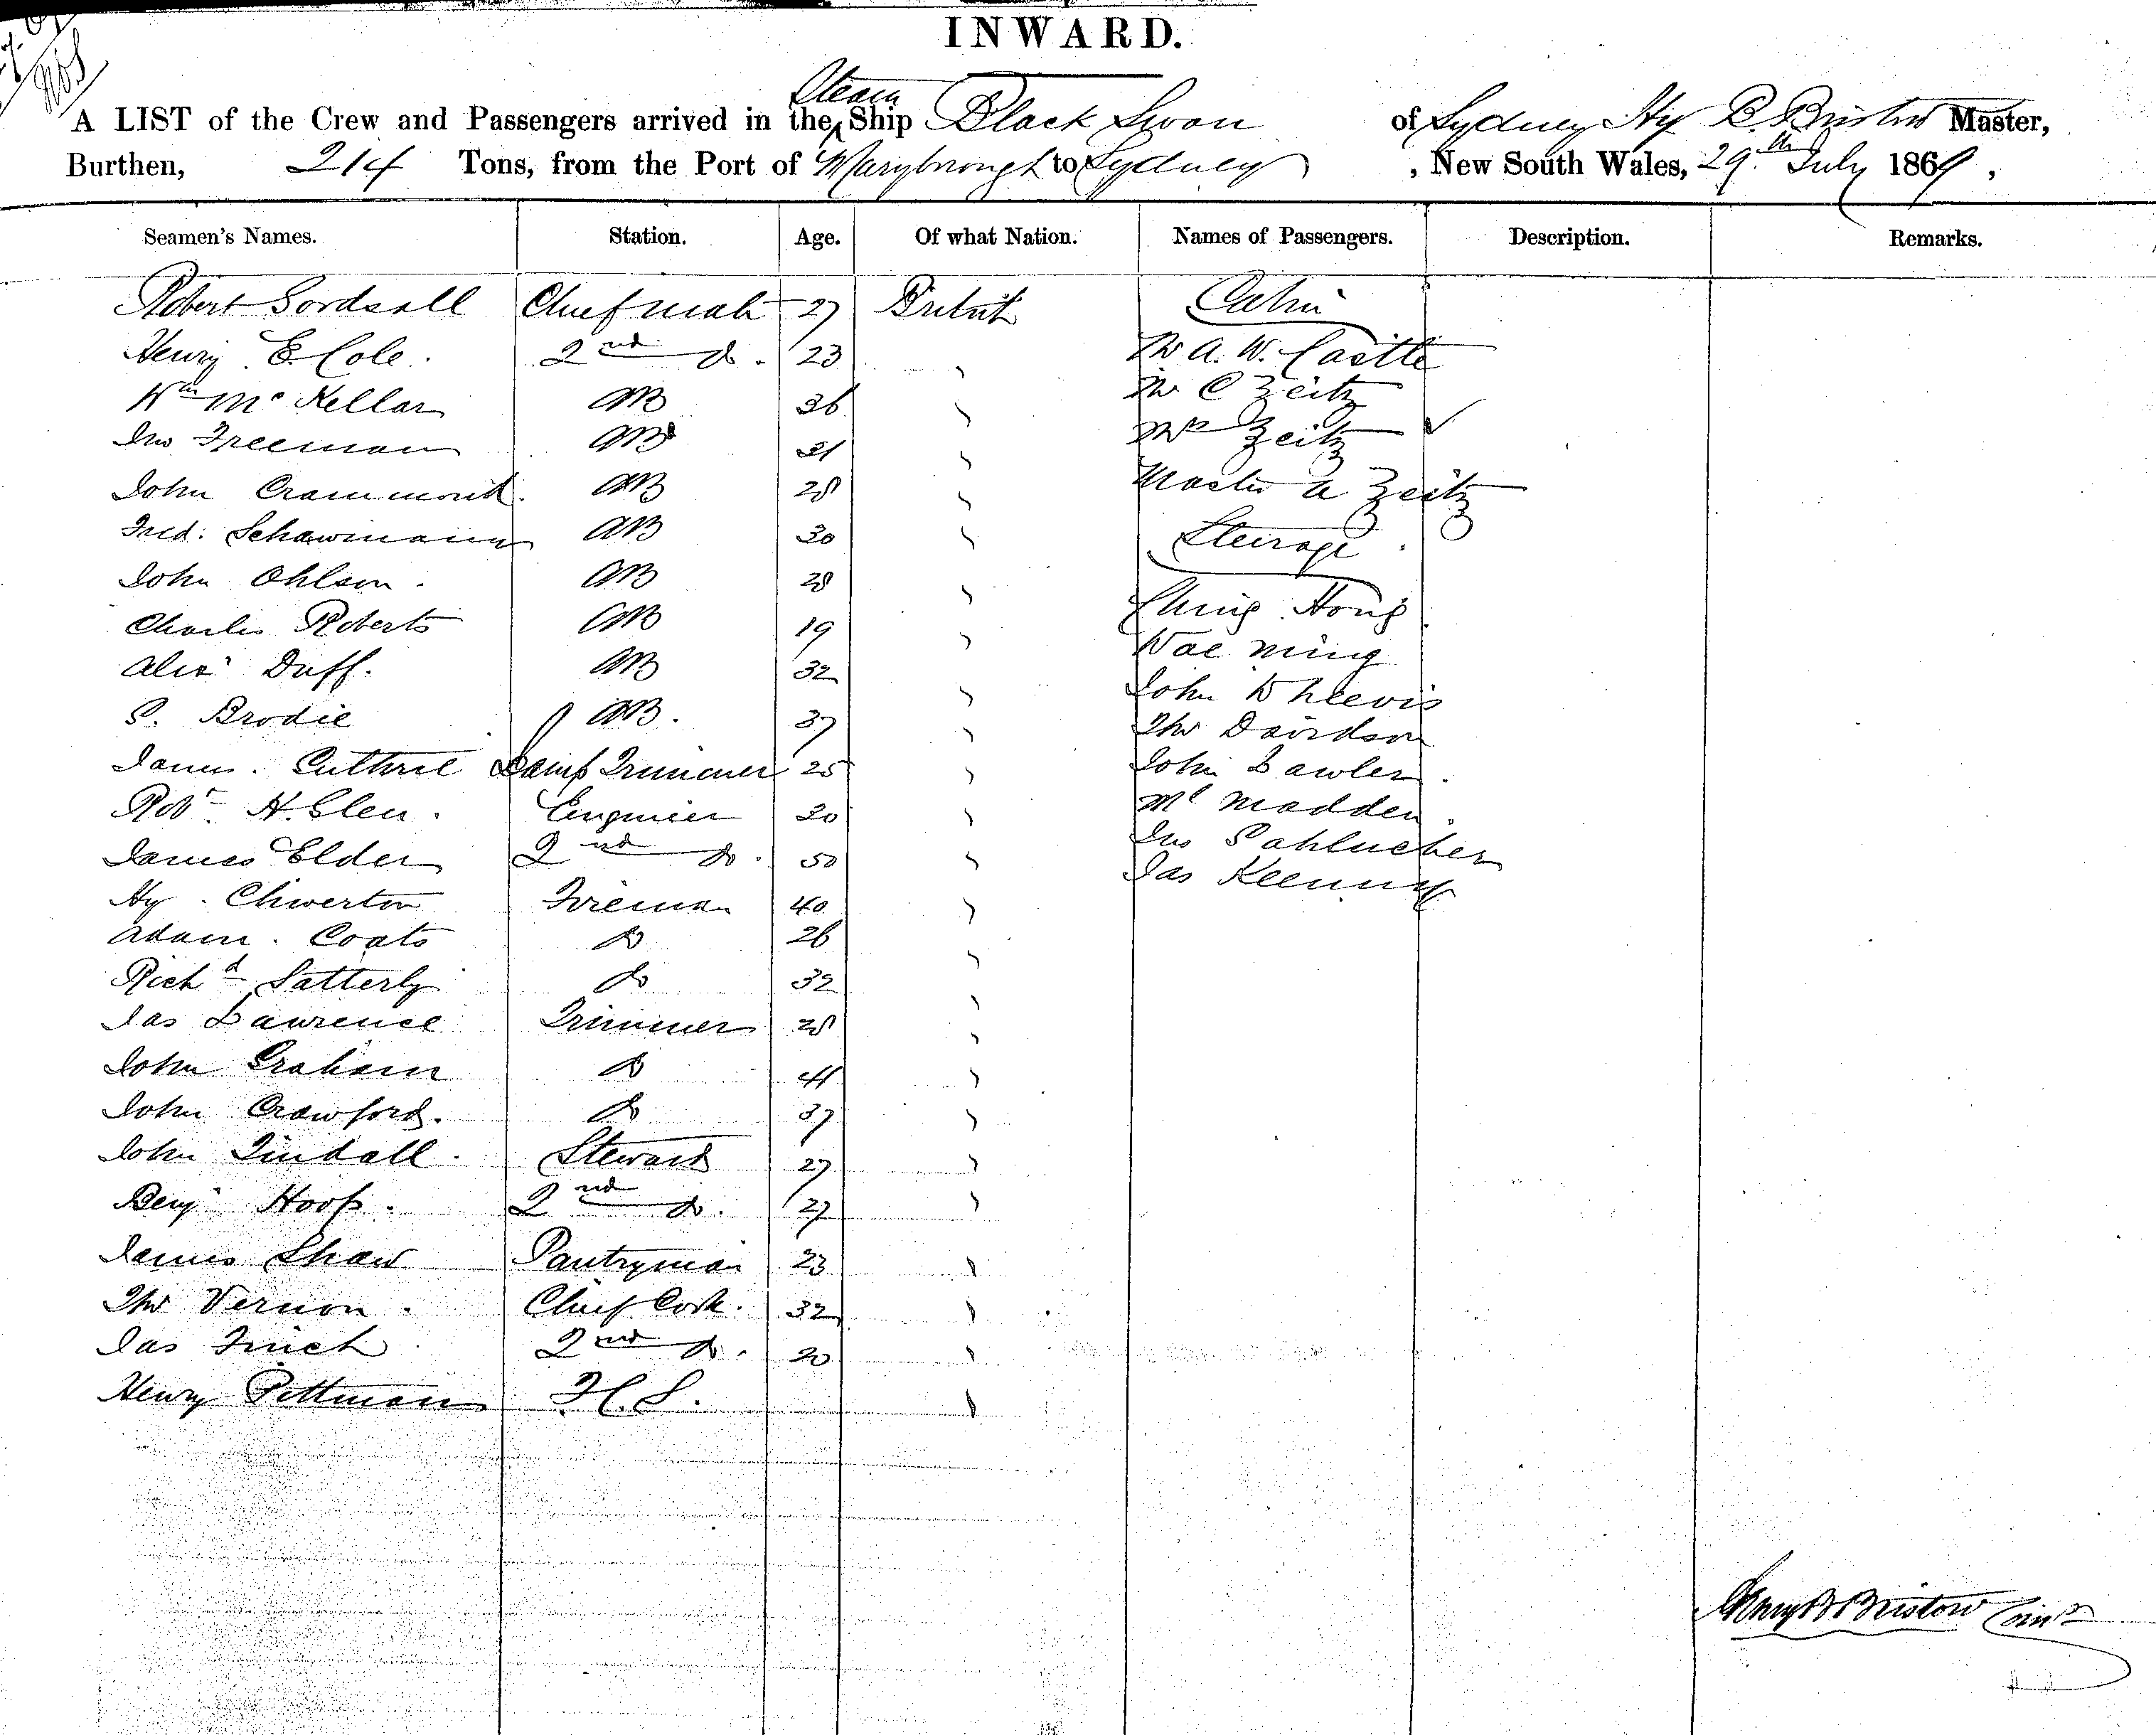 INWARD.
A LIST of the Crew and Passengers arrived in the Steam Ship Black Swan of Sydney Hy B. Bristow Master,
Burthen, 214 Tons, from the Port of Maryborough to Sydney, New South Wales, 29th July 1869,
Seamen's Names. Station. Age. Of what Nation. Names of Passengers. Description. Remarks.
Robert Sordsall Chief mate 27 British Cabin
Henry E. Cole. 2nd Do. 23 Mr A. W. Castle
Wm McKellar AB 36 Mr C Zeitz
Jno Freeman AB 21 Mrs Zeitz
John Crammond. AB 28 Master A Zeitz
Fred: Schawmann AB 30 Steerage
John Ohlson. AB 28 Ching Hong
Charles Roberts AB 19 Wae ming
Alexr Duff. AB 32 John
S. Brodie AB. 37 Thos Davidson
James. Guthrie Lamp Trimmer 25 John Lawler.
Robt H. Glen. Engineer 30 Ml Madden.
James Elder 2nd Do. 50 Jno
Hy. Chiverton Fireman 40 Jas
Adam. Coats Do 26
Richd Satterly Do 32
Jas Lawrence Trimmer 28
John Graham Do 41
John Crawford. Do 37
John Tindall. Steward 27
Benj Hoop. 2nd Do. 27
James Shaw Pantryman 23
Thos Vernon. Chief Cook. 32
Jas Finch 2nd Do. 20
Henry Pittman
Henry B Bristow